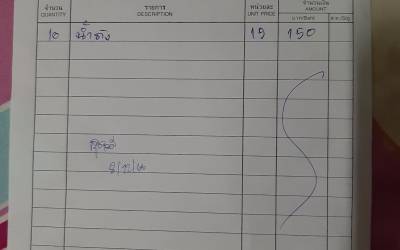 จำนวน รายการ หน่วยละ จำนวนเงิน
QUANTITY DESCRIPTION UNIT PRICE AMOUNT
บาท/Baht ส.ต./Stg.
10 น้ำถัง 15 150